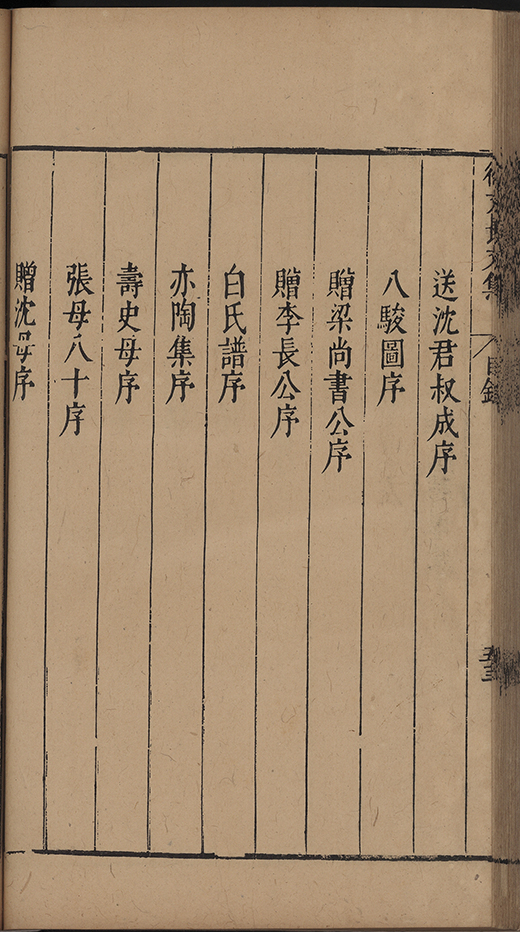 徐文長文集
目錄
五三
送沈君叔成序
八駿圖序
贈梁尚書公序
贈李長公序
白氏譜序
亦陶集序
壽史母序
張母八十序
贈沈母序